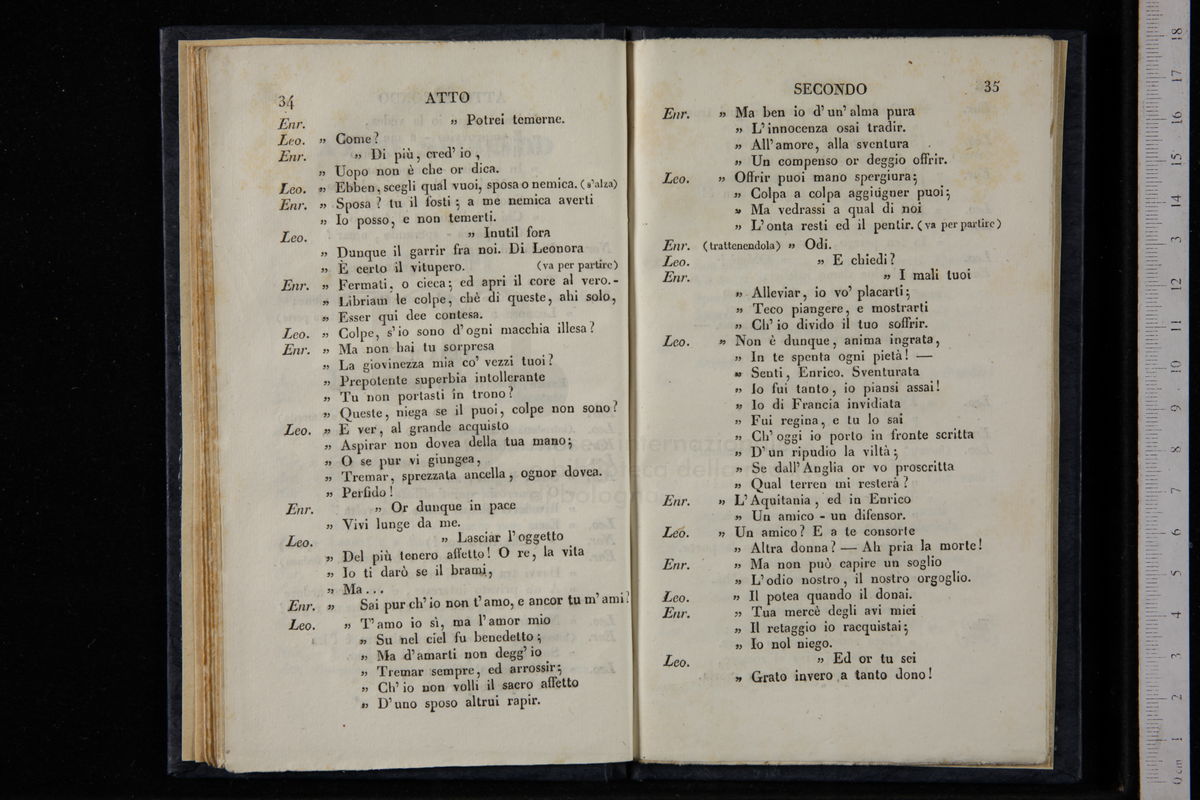 34 ATTO
Enr. „ Potrei temerne.
Leo. „ Come?
Enr. „ Di più, cred' io,
„ Uopo non è che or dica.
Leo. „ Ebben, scegli qual vuoi, sposa o nemica. (s'alza)
Enr. „ Sposa? tu il fosti; a me nemica averti
„ Io posso, e non temerti.
Leo. „ Inutil fora
„ Dunque il garrir fra noi. Di Leonora
„ È certo il vitupero. (va per partire)
Enr. „ Fermati, o cieca; ed apri il core al vero.-
„ Libriam le colpe, chè di queste, ahi solo,
„ Esser qui dee contesa.
Leo. „ Colpe, s'io sono d'ogni macchia illesa?
Enr. „ Ma non hai tu sorpresa
„ La giovinezza mia co' vezzi tuoi?
„ Prepotente superbia intollerante
„ Tu non portasti in trono?
„ Queste, niega se il puoi, colpe non sono?
Leo. „ E ver, al grande acquisto
„ Aspirar non dovea della tua mano;
„ O se pur vi giungea,
„ Tremar, sprezzata ancella, ognor dovea.
„ Perfido!
Enr. „ Or dunque in pace
„ Vivi lunge da me.
Leo. „ Lasciar l'oggetto
„ Del più tenero affetto! O re, la vita
„ Io ti darò se il brami,
„ Ma...
Enr. „ Sai pur ch'io non t'amo, e ancor tu m'ami?
Leo. „ T'amo io sì, ma l'amor mio
„ Su nel ciel fu benedetto;
„ Ma d'amarti non degg' io
„ Tremar sempre, ed arrossir;
„ Ch' io non volli il sacro affetto
„ D' uno sposo altrui rapir.
SECONDO 35
Enr. „ Ma ben io d' un' alma pura
„ L' innocenza osai tradir.
„ All' amore, alla sventura
„ Un compenso or deggio offrir.
Leo. „ Offrir puoi mano spergiura;
„ Colpa a colpa aggiugner puoi;
„ Ma vedrassi a qual di noi
„ L' onta resti ed il pentir. (va per partire)
Enr. (trattenendola) „ Odi.
Leo. „ E chiedi?
Enr. „ I mali tuoi
„ Alleviar, io vo' placarti;
„ Teco piangere, e mostrarti
„ Ch' io divido il tuo soffrir.
Leo. „ Non è dunque, anima ingrata,
„ In te spenta ogni pietà! —
„ Senti, Enrico. Sventurata
„ Io fui tanto, io piansi assai!
„ Io di Francia invidiata
„ Fui regina, e tu lo sai
„ Ch' oggi io porto in fronte scritta
„ D' un ripudio la viltà;
„ Se dall' Anglia or vo proscritta
„ Qual terren mi resterà?
Enr. „ L' Aquitania, ed in Enrico
„ Un amico - un difensor.
Leo. „ Un amico? E a te consorte
„ Altra donna? — Ah pria la morte!
Enr. „ Ma non può capire un soglio
„ L' odio nostro, il nostro orgoglio.
Leo. „ Il potea quando il donai.
Enr. „ Tua mercè degli avi miei
„ Il retaggio io racquistai;
„ Io nol niego.
Leo. „ Ed or tu sei
„ Grato invero a tanto dono!